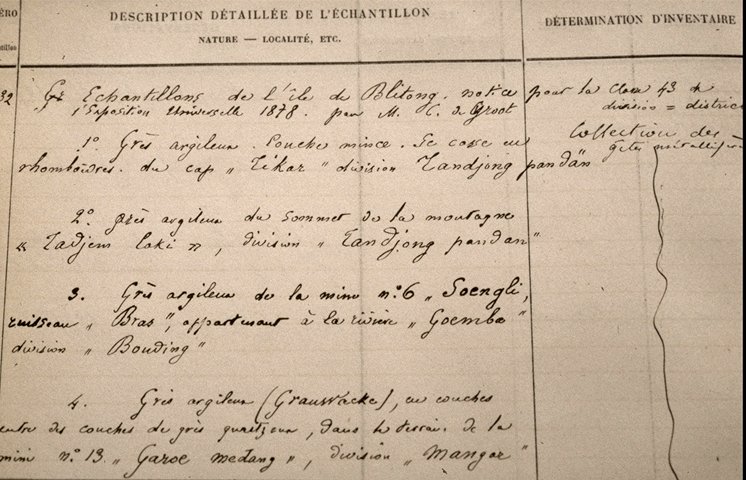 ÉRO
DESCRIPTION DÉTAILLÉE DE L'ÉCHANTILLON
DÉTERMINATION D'INVENTAIRE
NATURE — LOCALITÉ, ETC.
32 Echantillons de l'île de Blitong. notice pour la classe 43 de
l'Exposition Universelle 1878. par M. C. de Groot
division = district
1º Grès argileux. Couche mince. Se casse en
Collection des
gîtes métallifères
rhomboïdres. du cap „ Tikar " division Tandjong pandan
2º. grès argileux du Sommet de la montagne
„ Tadjem laki " , division „ Tandjong pandan "
3. Grès argileux de la mine nº 6 „ Soengli,
ruisseau „ Bras ", appartenant à la rivière „ Goemba "
division „ Bouding "
4. Grès argileux (Grauwacke), en couches
entre des couches de grès quartzeux, dans le terrain de la
mine nº 13. „ Garoe medang ", division „ Mangar "